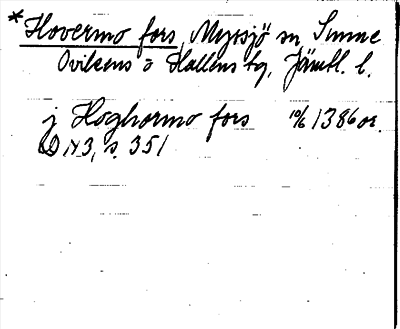 *Hovermo fors, Myssjö sn, Sunne
Ovikens o Hallens tg, Jämtl. l.
j Høghormo fors 10/6 1386 or.
DN 3, s. 351